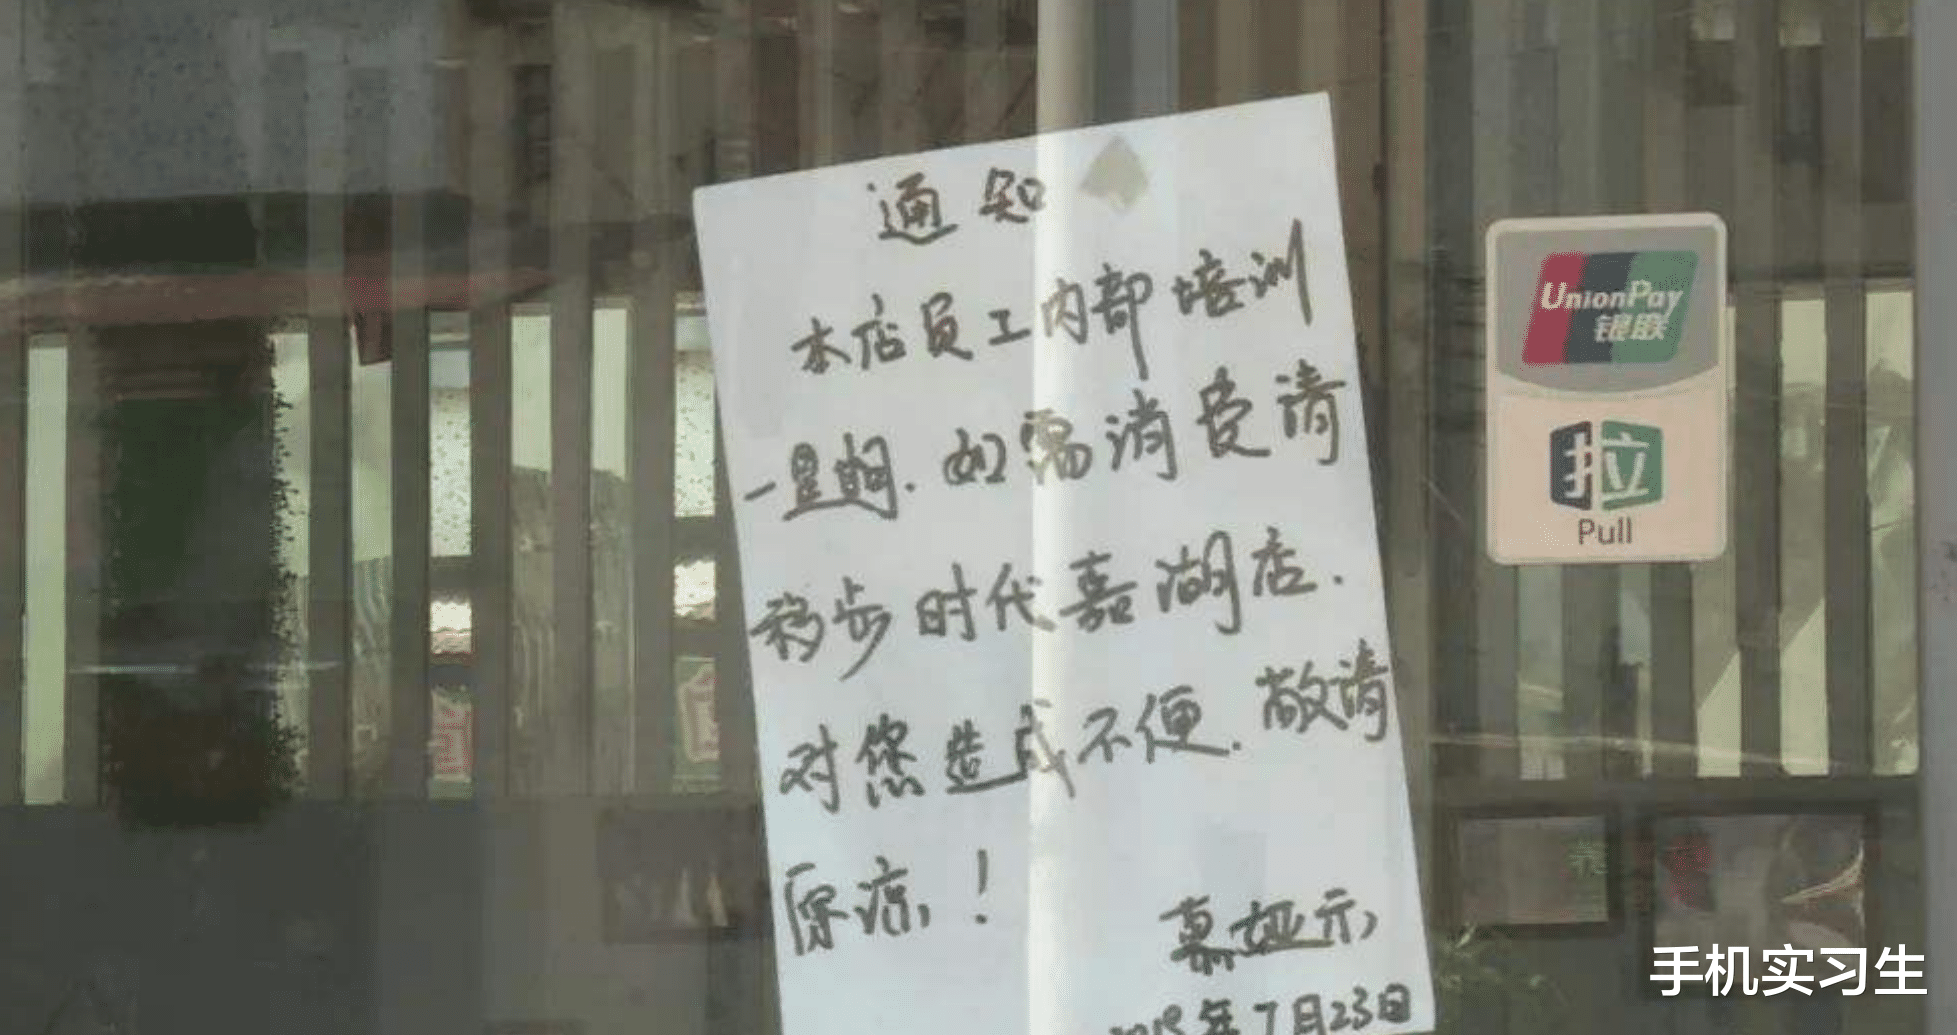 通知
本店员工内部培训
一星期.如需消费请
移步时代嘉湖店.
对您造成不便.敬请
原凉!
慕娅示
年7月23日
UnionPay
银联
拉
Pull
手机实习生